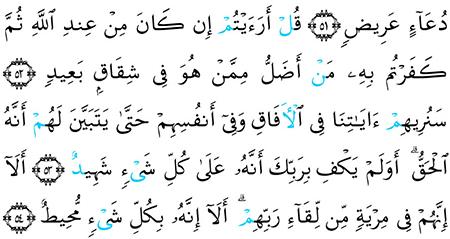 دُعَآءٍ عَرِيضٖ ٥١ قُلۡ أَرَءَيۡتُمۡ إِن كَانَ مِنۡ عِندِ ٱللَّهِ ثُمَّ
كَفَرۡتُم بِهِۦ مَنۡ أَضَلُّ مِمَّنۡ هُوَ فِي شِقَاقِۭ بَعِيدٖ ٥٢
سَنُرِيهِمۡ ءَايَٰتِنَا فِي ٱلۡأٓفَاقِ وَفِيٓ أَنفُسِهِمۡ حَتَّىٰ يَتَبَيَّنَ لَهُمۡ أَنَّهُ
ٱلۡحَقُّۗ أَوَلَمۡ يَكۡفِ بِرَبِّكَ أَنَّهُۥ عَلَىٰ كُلِّ شَيۡءٖ شَهِيدٌ ٥٣ أَلَآ
إِنَّهُمۡ فِي مِرۡيَةٖ مِّن لِّقَآءِ رَبِّهِمۡۗ أَلَآ إِنَّهُۥ بِكُلِّ شَيۡءٖ مُّحِيطُۢ ٥٤